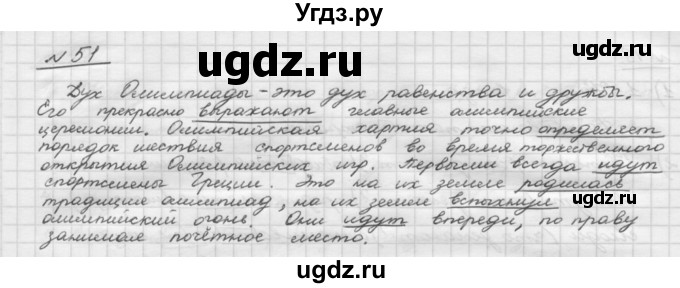 Угдз.ру
№51
ugdz.ru
ugdz.ru
Дух Олимпиады - это дух равенства и дружбы.
Его прекрасно выражают главные олимпийские
церемонии. Олимпийская хартия точно определяет
порядок шествия спортсменов во время торжественного
открытия Олимпийских игр. Первыми всегда идут
спортсмены Греции. Это на их земле родилась
традиция олимпиад, на их земле вспыхнул
олимпийский огонь. Они идут впереди, по праву
занимая почётное место.
ugdz.ru
ugdz.ru
ugdz.ru